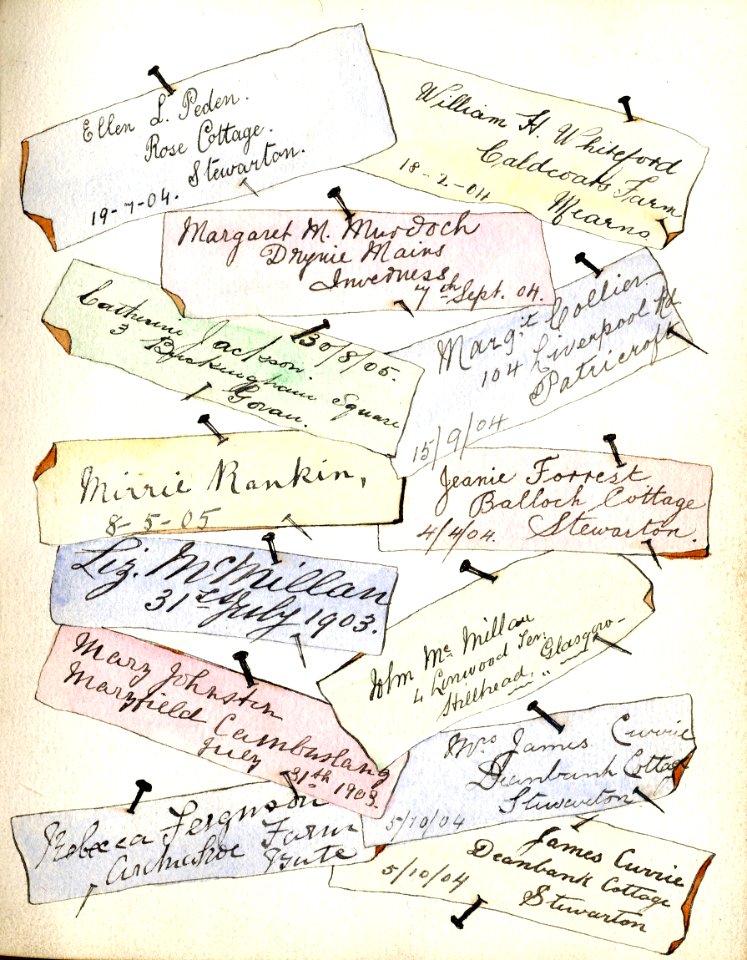 Ellen L. Peden.
Rose Cottage.
Stewarton.
19-7-04.
William H. Whiteford
Caldcoats Farm
Mearns
18-2-04
Margaret M. Murdoch
Drynie Mains
Inverness
7th Sept. 04.
Catherine Jackson.
3 Buckingham Square
Govan.
30/8/05.
Margt. Collier.
104 Liverpool Rd
Patricroft
15/9/04
Mirrie Rankin,
8-5-05
Jeanie Forrest
Balloch Cottage
Stewarton.
4/4/04.
Liz. McMillan
31st July 1903.
John Mc Millan
4 Linwood Ter.
Hillhead, Glasgow
Mary Johnston
Maryfield Cambuslang
July 31th 1903.
Mrs James Currie
Deanbank Cottage
Stewarton
5/10/04
Rebecca Ferguson
Farm
Bute
James Currie
Deanbank Cottage
Stewarton
5/10/04